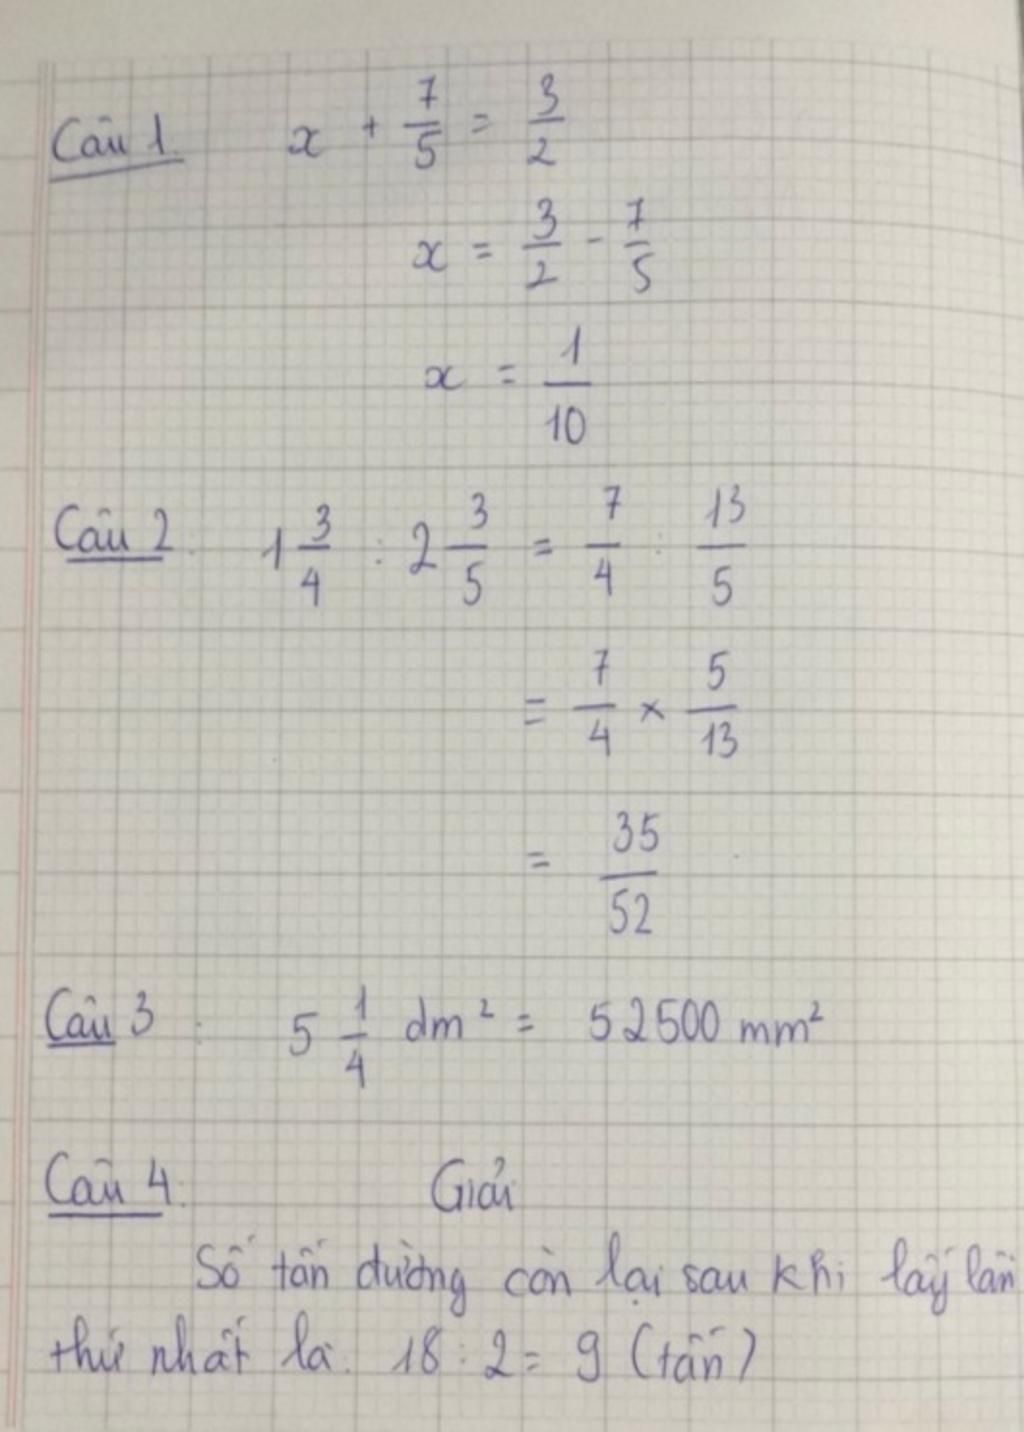 Câu 1. x + 7/5 = 3/2
x = 3/2 - 7/5
x = 1/10
Câu 2: 1 3/4 : 2 3/5 = 7/4 : 13/5
= 7/4 × 5/13
= 35/52
Câu 3: 5 1/4 dm² = 52500 mm²
Câu 4: Giải
Số tấn đường còn lại sau khi lấy lần
thứ nhất là. 18 : 2 = 9 (tấn)